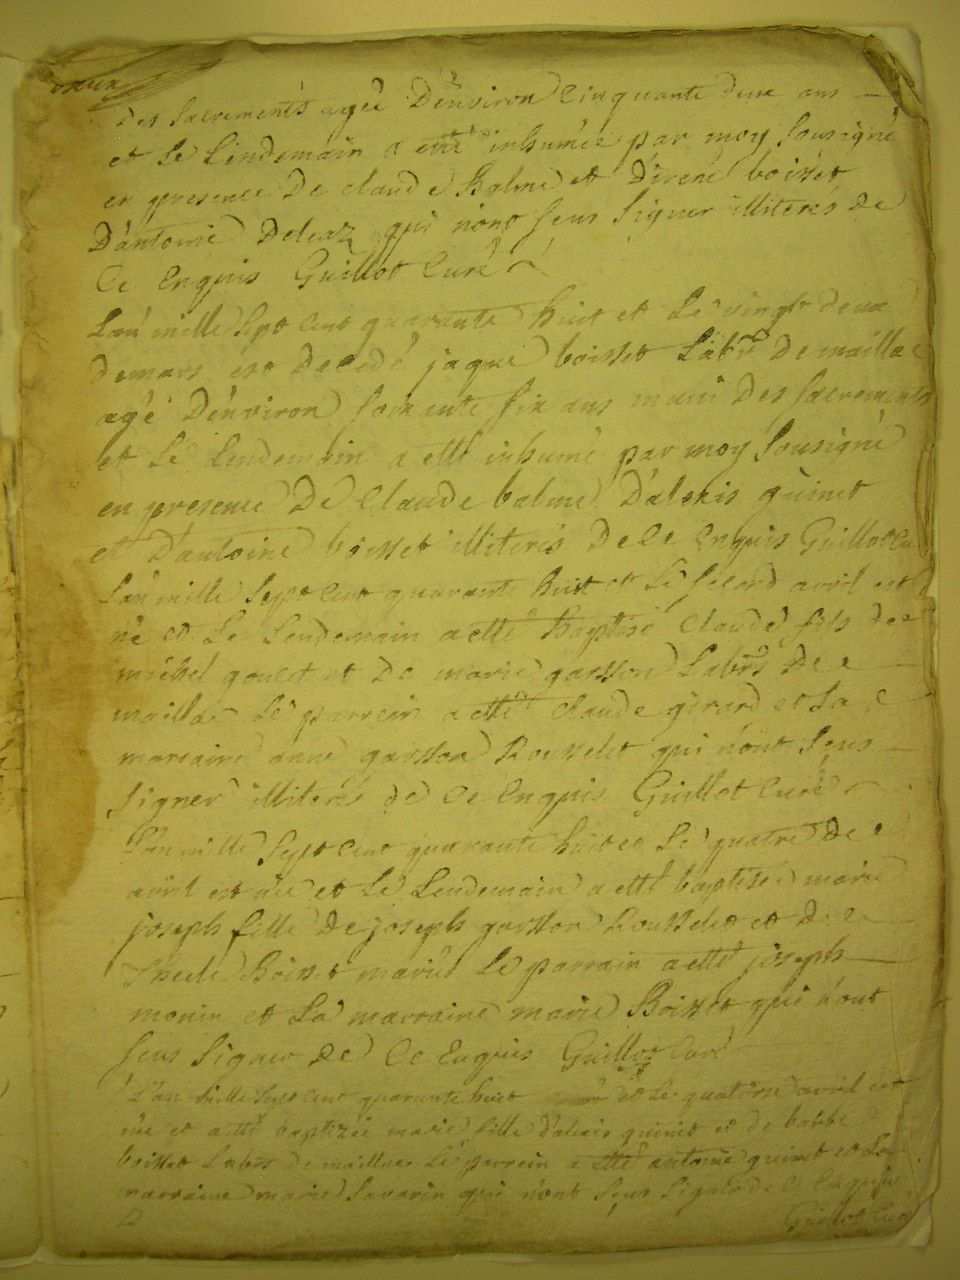 Des sacrements agée D'environ Cinquante deux ans
et Le Lendemain a eté inhumée par moy Sousigné
en presence De claude Balme et D'irené boisset
D'antoine qui n'ont sceus signer illiterés de
Ce Enquis Guillot Curé
L'an mille sept cent quarante huit et Le vingt deux
de mars est Decedé jaque boisset Labr De maillac
agé D'environ soixante six ans muni Des sacrements
et Le Lendemain a etté inhumé par moy Sousigné
en presence De Claude balme D'alexis guinet
et D'antoine boisset illiterés De Ce Enquis Guillot Cu
L'an mille sept cent quarante huit et Le second avril est
né et Le Lendemain a etté Baptisé Claude fils de
michel gouet et De marie gasson Labrs De
mailla Le parrein a etté claude girard et La
marraine anne gasson Rousselet qui n'ont sceus
signer illiterés de Ce Enquis Guillot Curé
L'an mille sept cent quarante huit et Le quatre De
avril est née et Le Lendemain a etté baptisée marie
joseph fille De joseph gasson Rousselet et De
Boisset mariés Le parrain a etté joseph
monin et La marraine marie Boisset qui n'ont
sceus signer De Ce Enquis Guillot Curé
L'an mille sept cent quarante huit et Le quatorse avril est
née et a etté baptizée marie fille D'alexis guinet et de
boisset Labrs De maillac Le parrein a etté antoine guinet et La
marraine marie savarin qui n'ont sceus signer de Ce Enquis
Guillot Curé